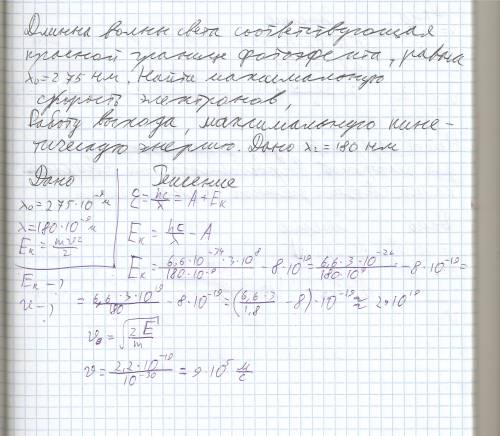 Длинна волны света соответствующая
красной границе фотоэфекта, равна
λ₀=275 нм. Найти максимальную
скорость электронов,
Работу выхода, максимальную кине-
тическую энергию. Дано λ₂=180 нм
Дано Решение
λ₀=275·10⁻⁹м ε=hc/λ=A+Eк
λ=180·10⁻⁹м Eк=hc/λ-A
Eк=mv²/2
Eк=6,6·10⁻³⁴·3·10⁸/180·10⁻⁹-8·10⁻¹⁹=6,6·3·10⁻²⁶/180·10⁻⁹-8·10⁻¹⁹=
Eк-?
v-? =6,6·3·10⁻¹⁹/180-8·10⁻¹⁹=(6,6·3/1,8-8)·10⁻¹⁹≈
v=√2E/m
v=2,2·10⁻¹⁹/10⁻³⁰=9·10⁵ м/с